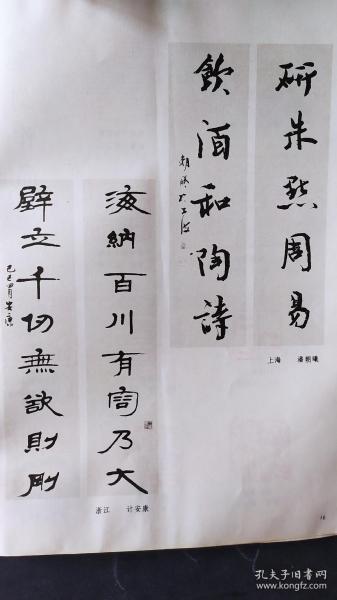 研朱點周易
飲酒和陶詩
朝曦於上海
上海 潘朝曦
海納百川有容乃大
壁立千仞無欲則剛
己巳四月安康
浙江 计安康
孔夫子旧书网
www.kongfz.com